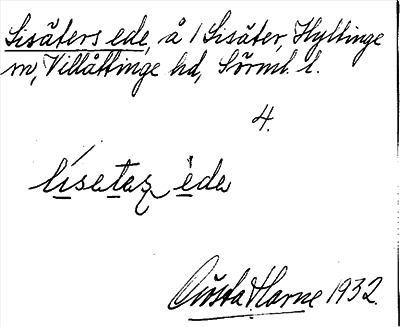 Lisäters ede, å 1 Lisäter, Hyltinge
sn, Villåttinge hd, Sörml. l.
4.
lisetaz ede
Gösta Harne 1932.